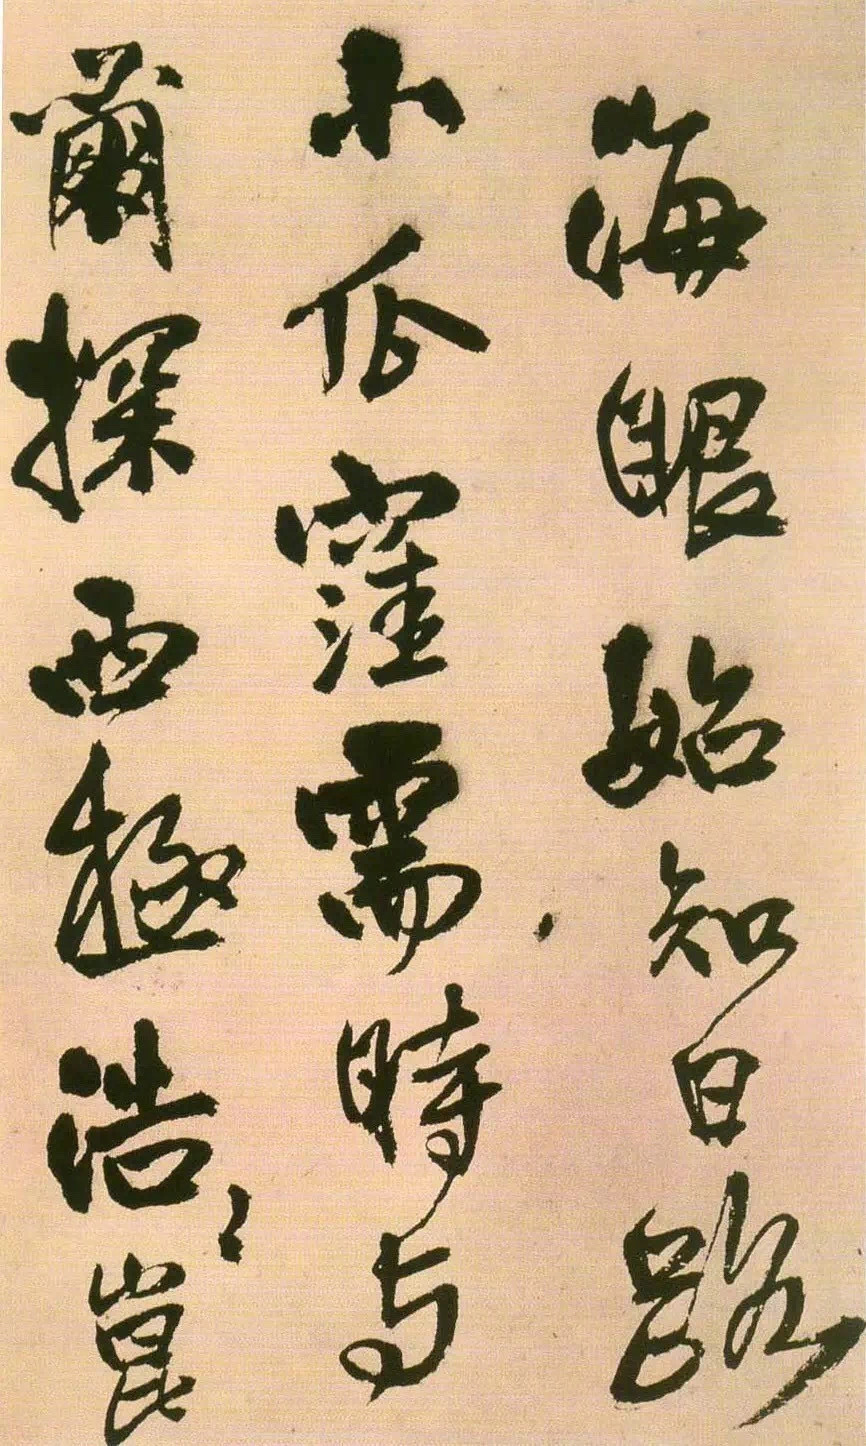 海眼始知日路
小爪窪需時与
爾探西極浩〻崑